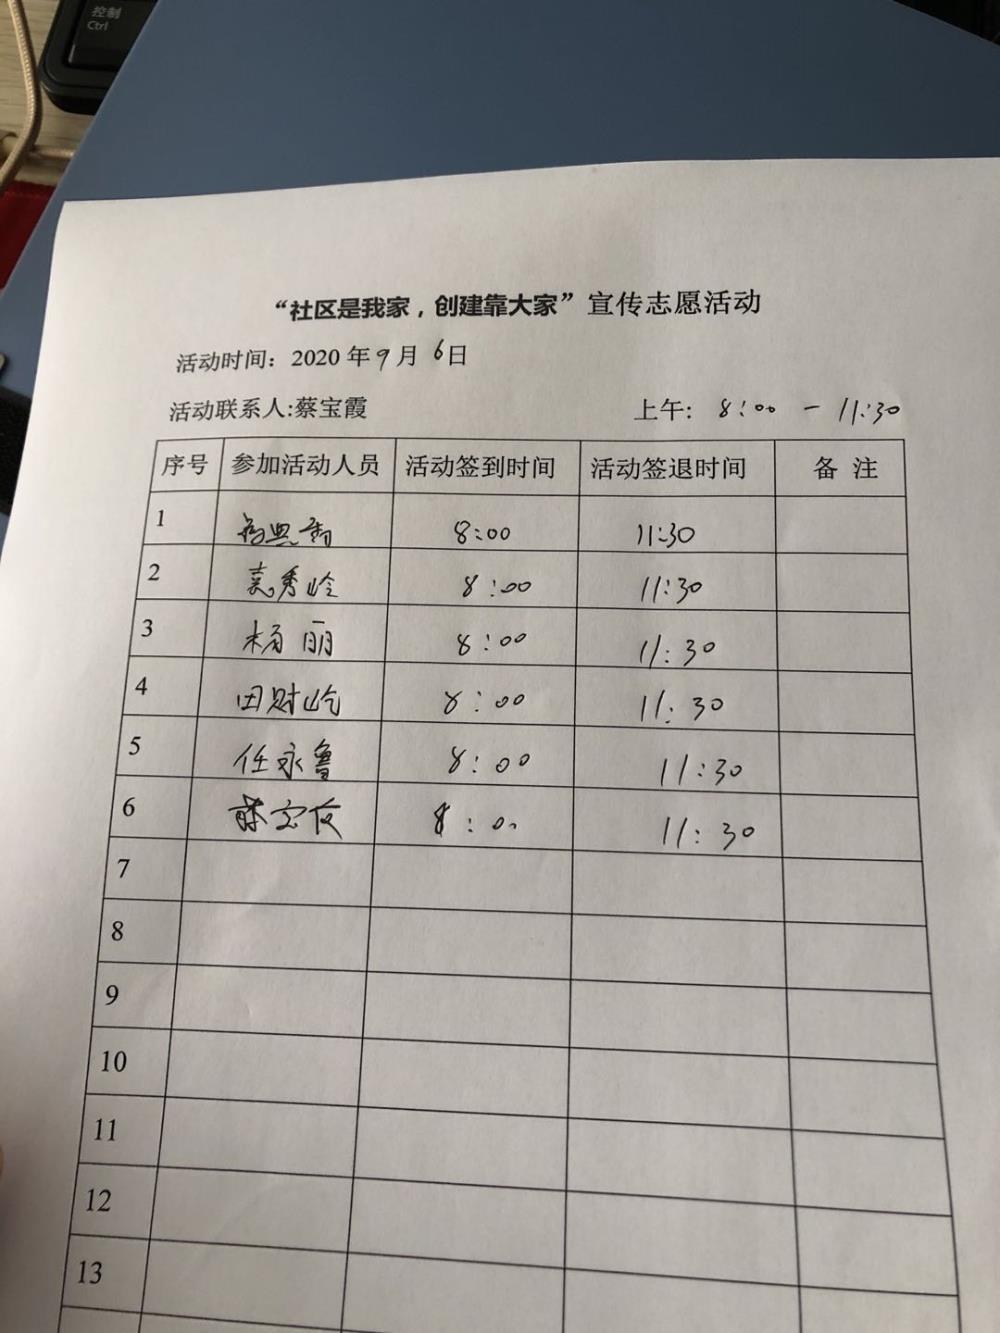 控制
Ctrl
“社区是我家，创建靠大家”宣传志愿活动
活动时间：2020年9月6日
活动联系人:蔡宝霞 上午: 8:00 — 11:30
序号 参加活动人员 活动签到时间 活动签退时间 备 注
1 8:00 11:30
2 秀岭 8:00 11:30
3 杨丽 8:00 11:30
4 田财岭 8:00 11:30
5 任永鲁 8:00 11:30
6 8:00 11:30
7
8
9
10
11
12
13